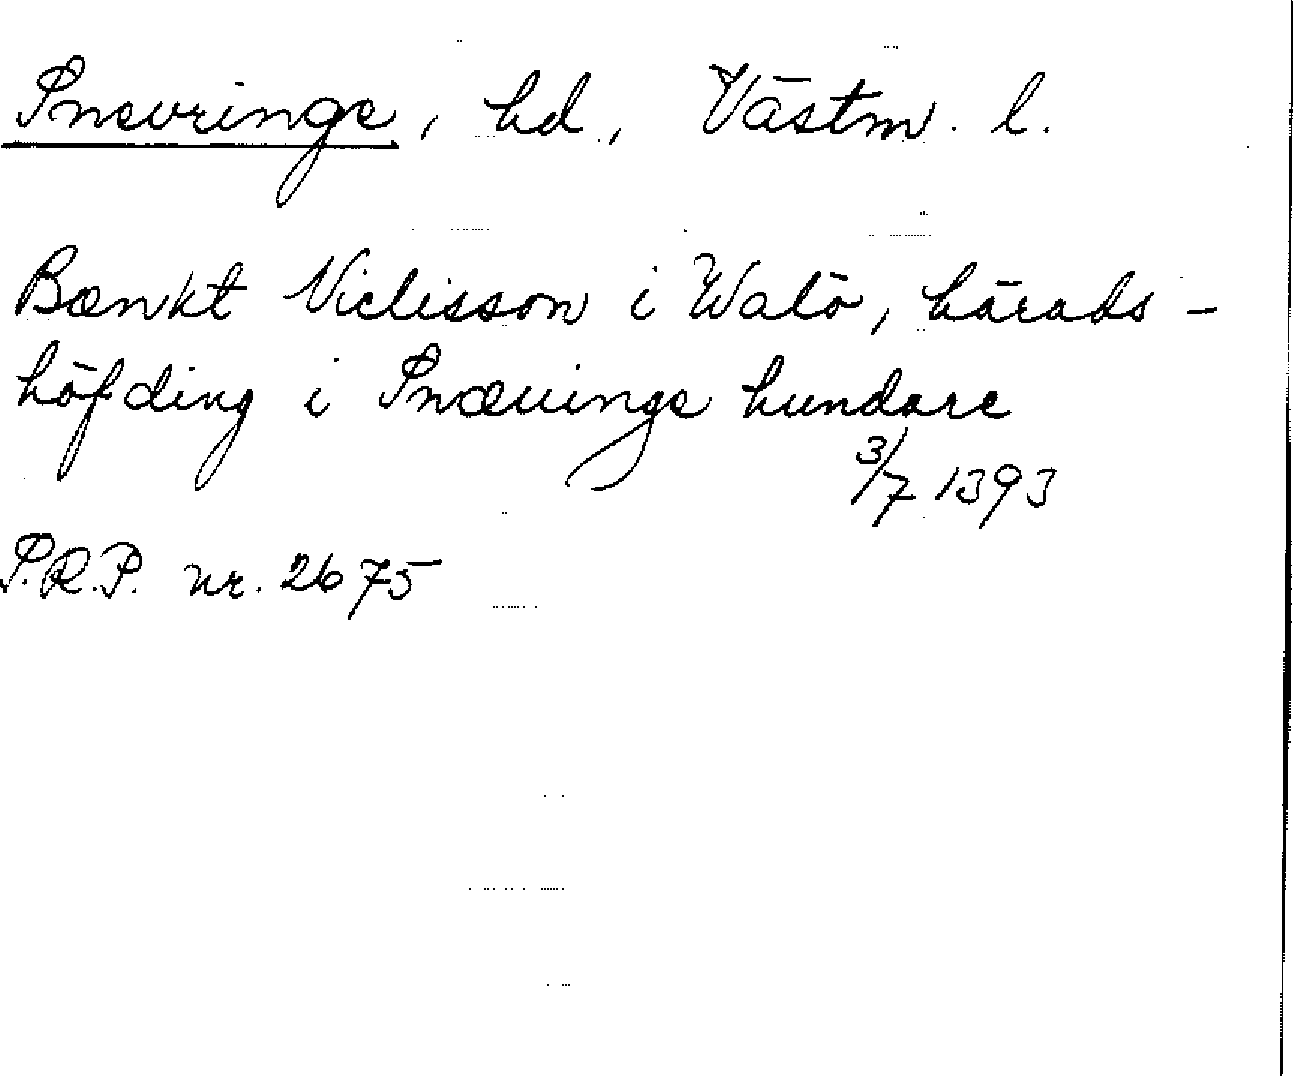 Snevringe, hd., Västm. l.
Bænkt Niclisson i Walö, härads-
höfding i Snæuinge hundare
3/7 1393
S.R.P. nr. 2675